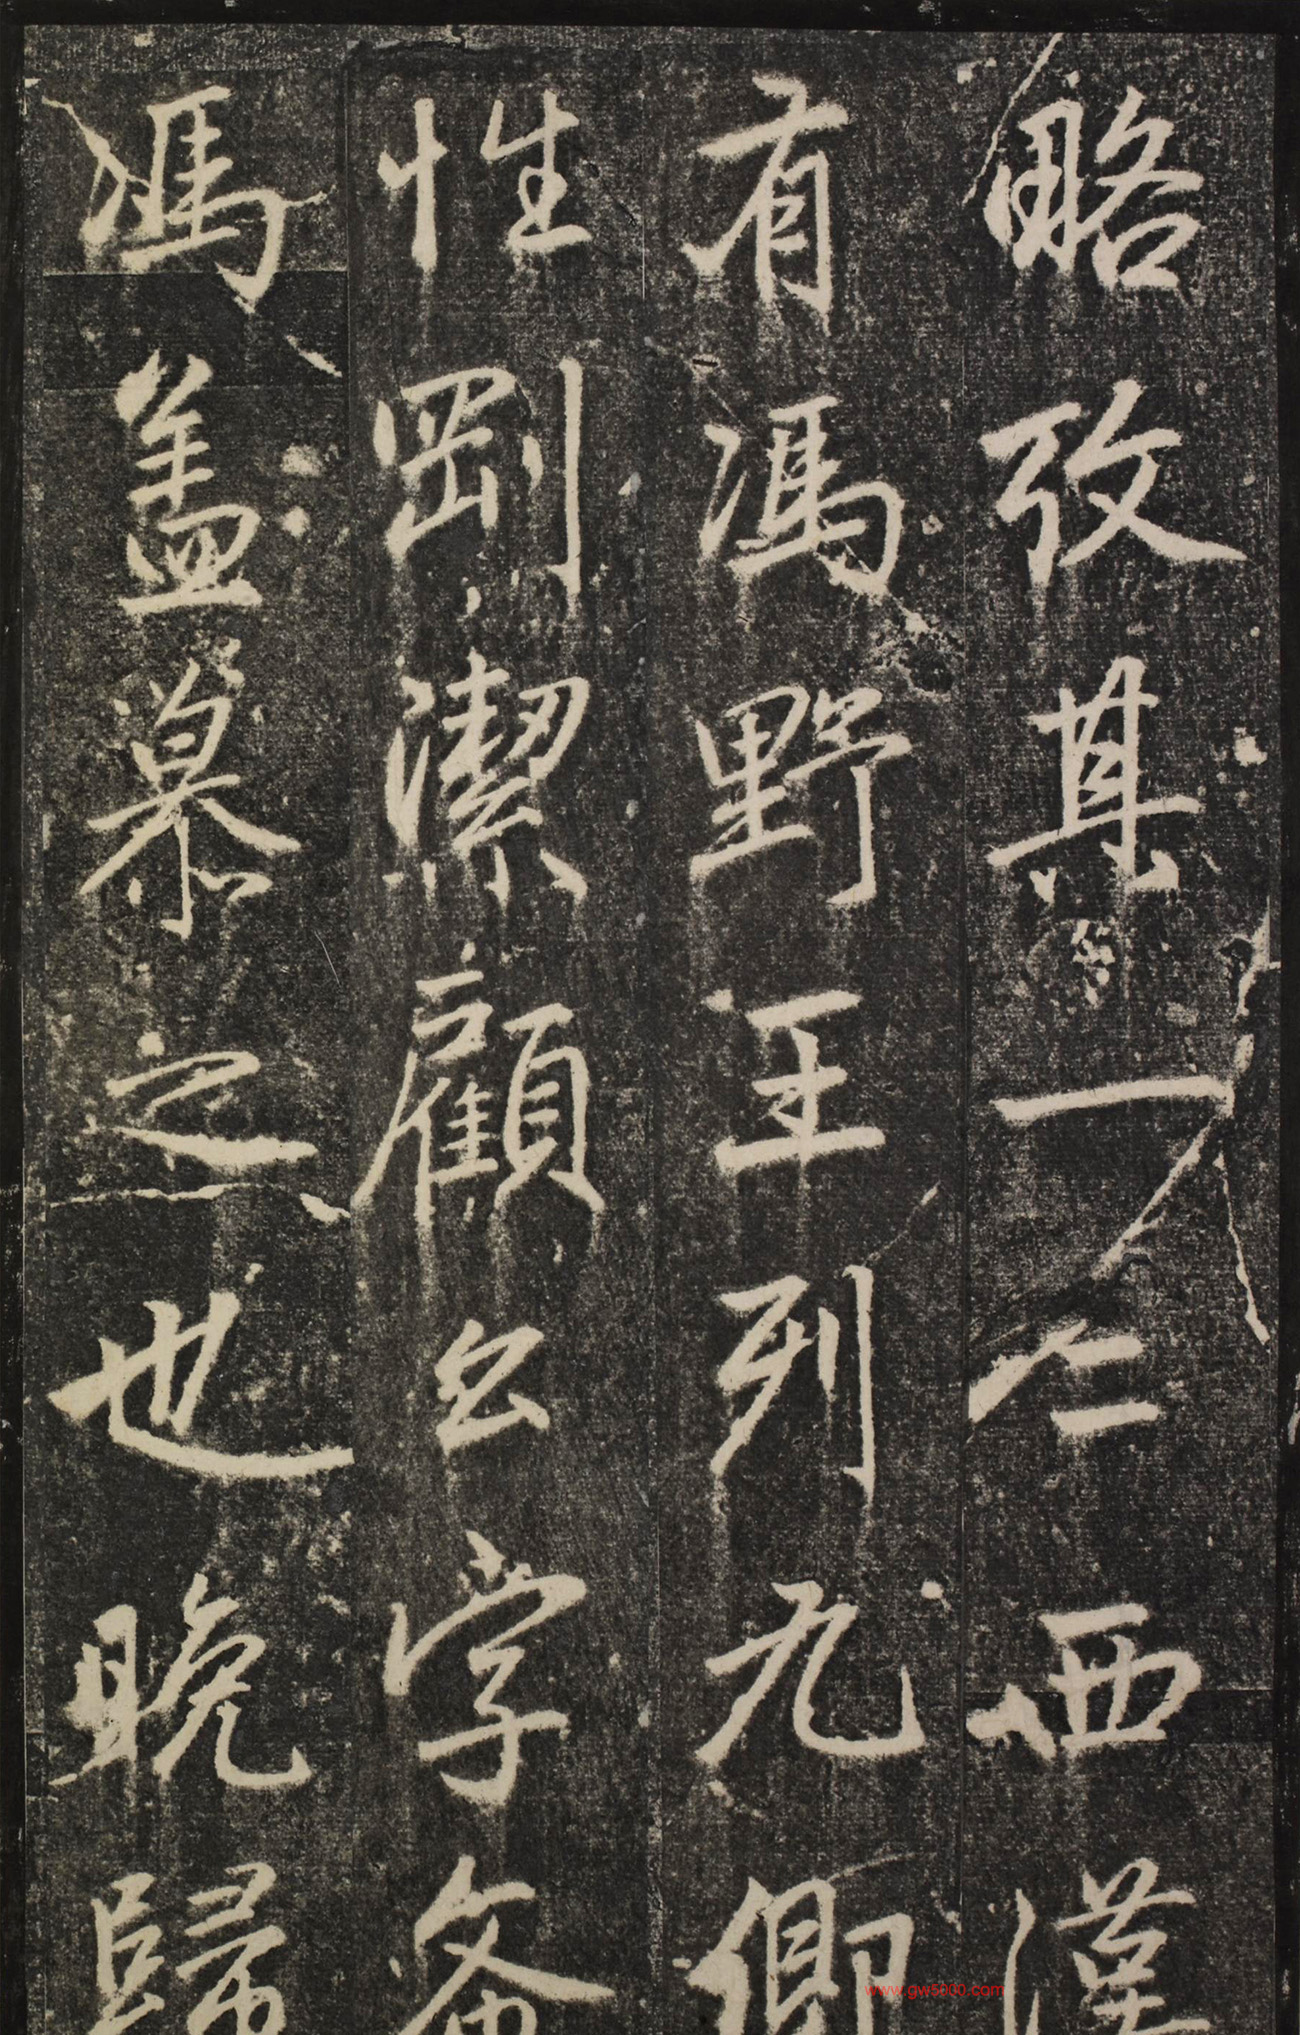 略攷其一二西漢
有馮野王列九卿
性剛潔顧以字為
馮蓋慕之也晚歸
www.gw5000.com